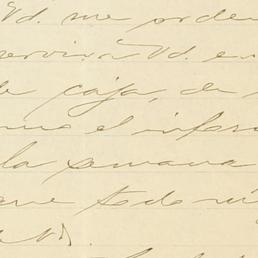 Vd. me orden
servirá Vd. en
de caja, de
mo el infor
la semana
que todo m
Vd.